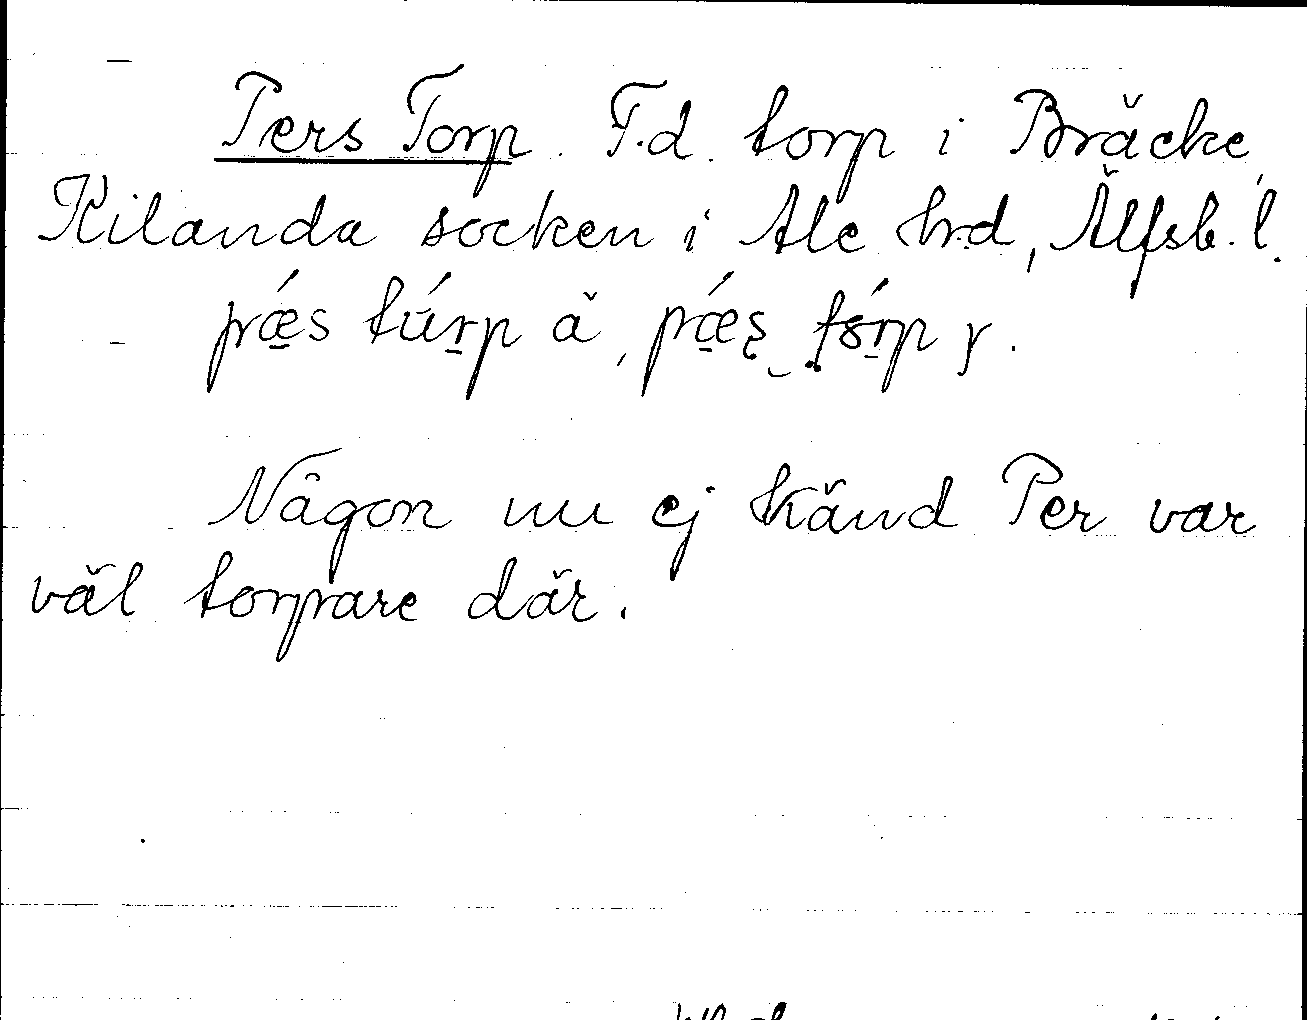 Pers Torp. F.d. torp i Bräcke,
Kilanda socken i Ale hrd, Älfsb. l.
pǽ̱s tú̱rp ä, pǽ̱s‿tó̱rp y.
Någon nu ej känd Per var
väl torpare där.